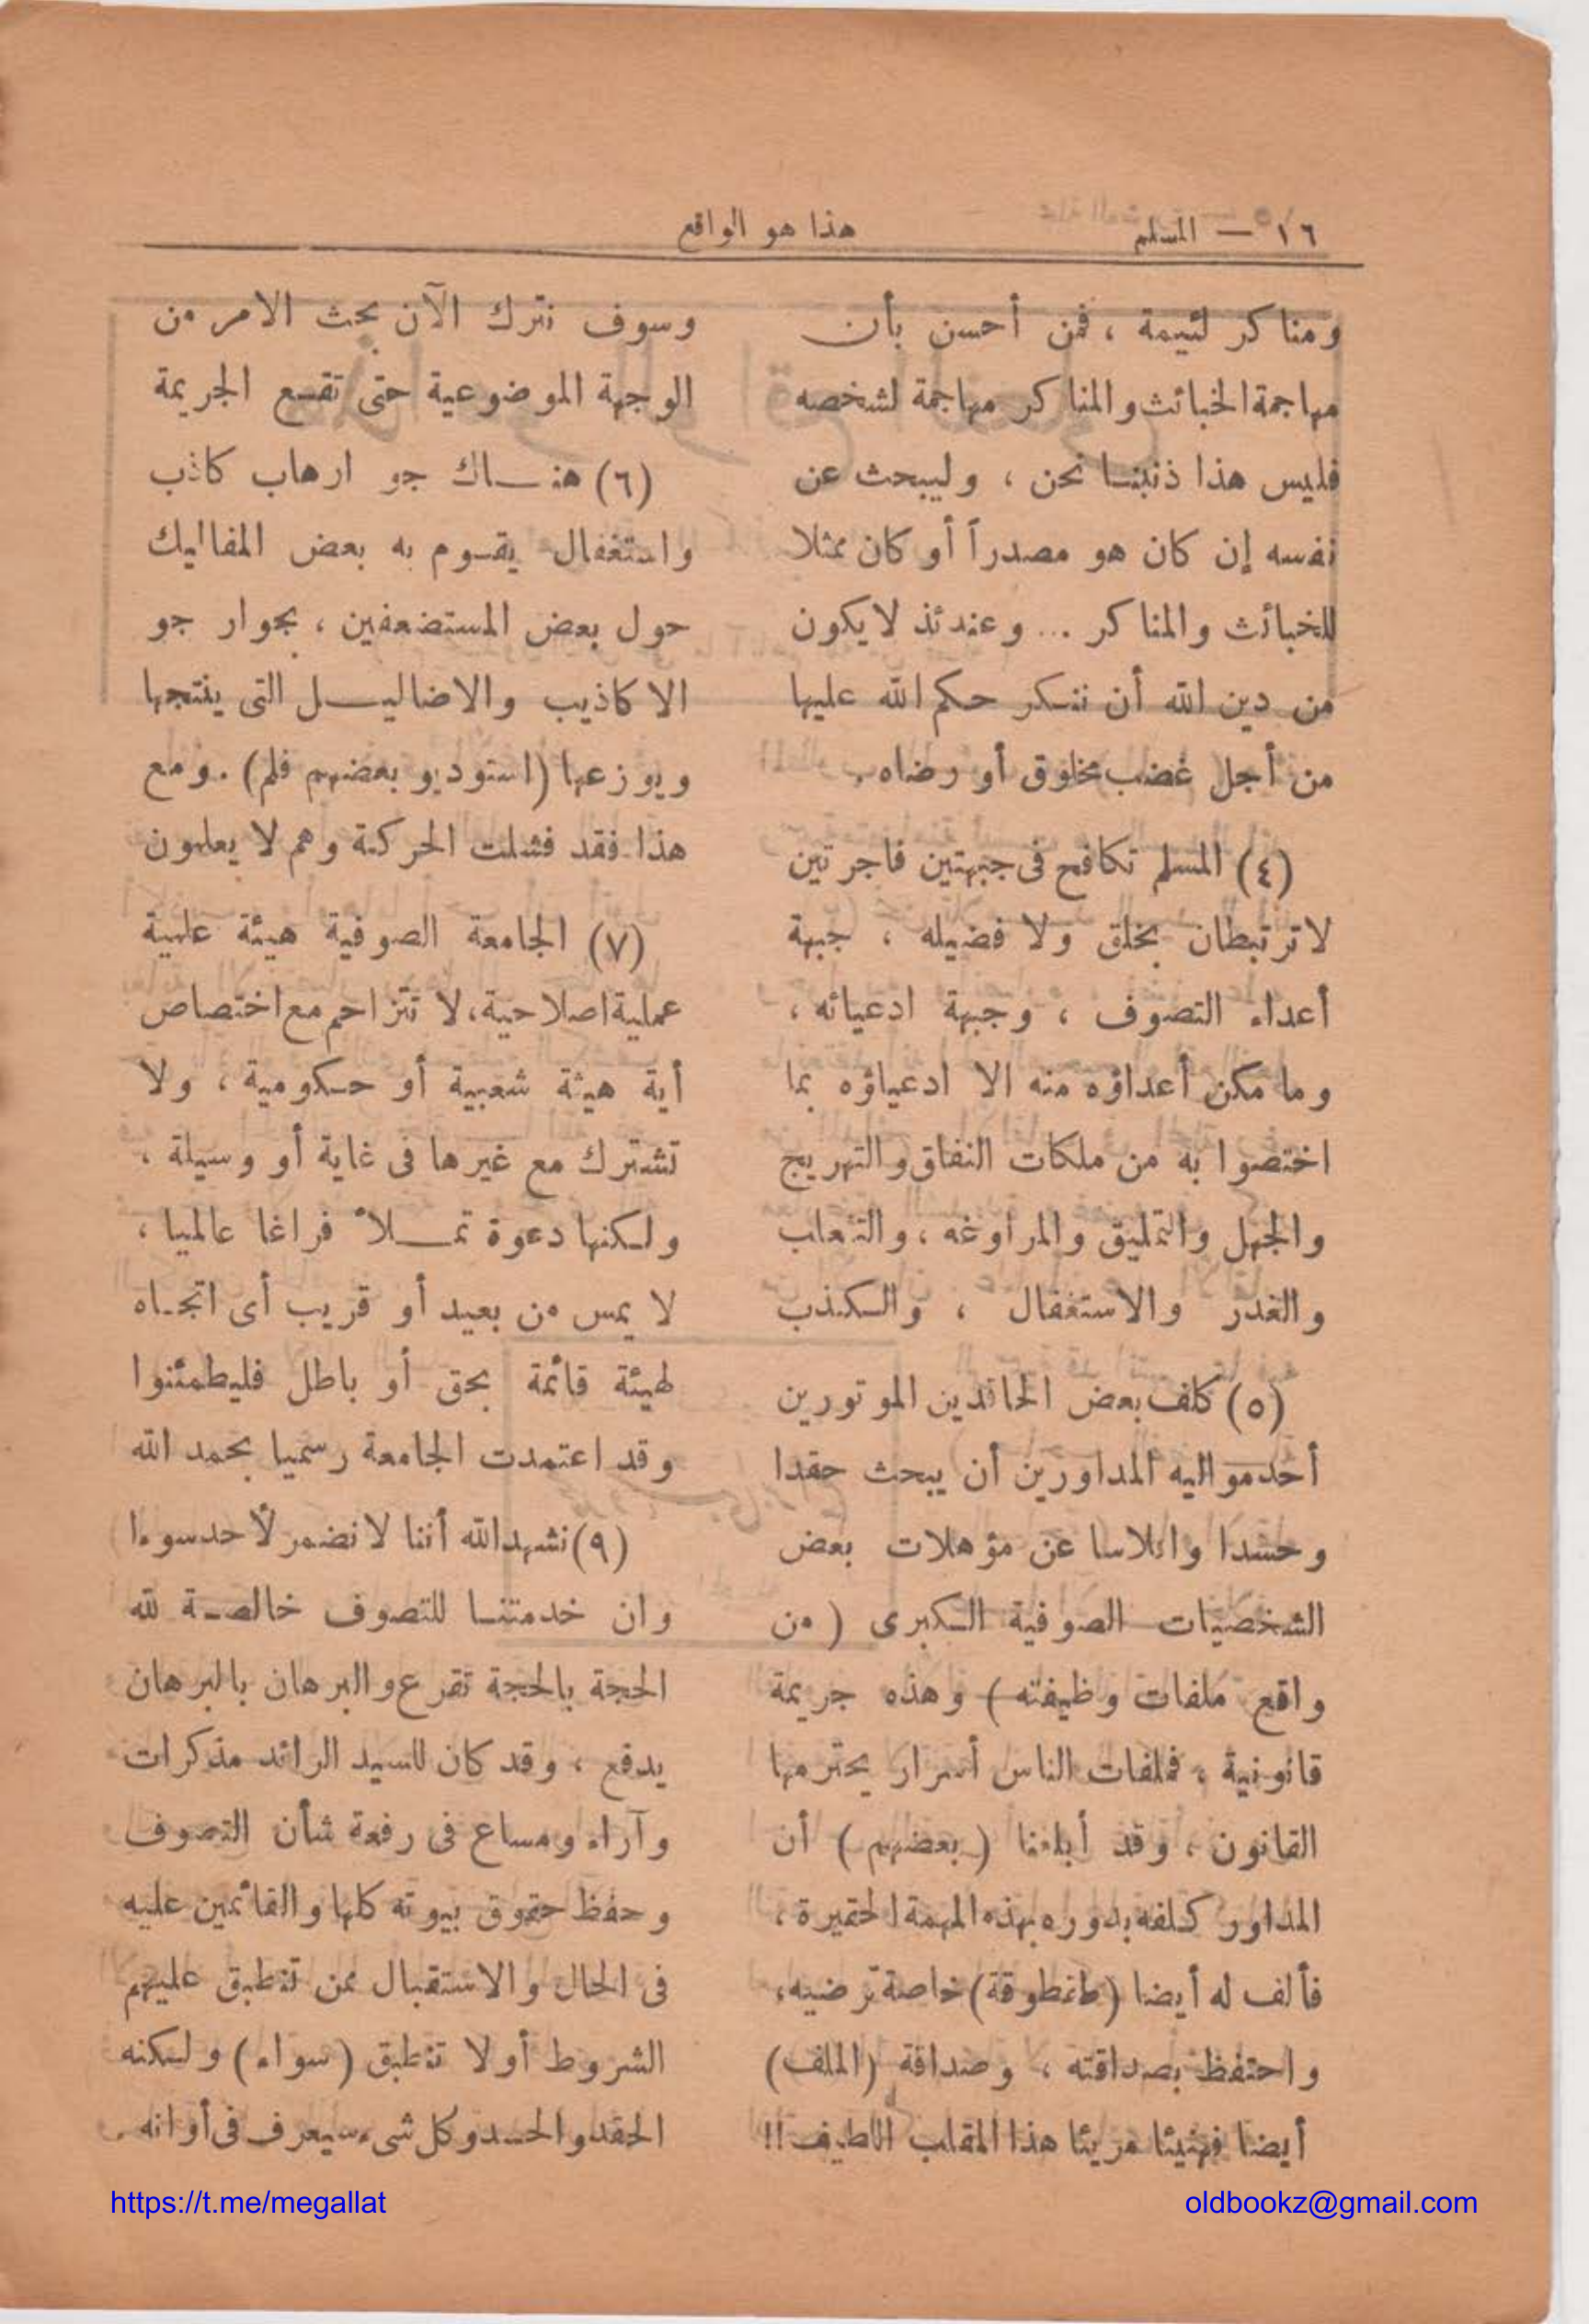 ١٦ — المسلم
هذا هو الواقع
ومناكر لئيمة ، فمن أحسن بأن
مهاجمة الخبائث والمناكر مهاجمة لشخصه
فليس هذا ذنبنا نحن ، وليبحث عن
نفسه إن كان هو مصدراً أو كان ممثلا
للخبائث والمناكر ... وعندئذ لا يكون
من دين الله أن ننكر حكم الله عليها
من أجل غضب مخلوق أو رضاه .
(٤) المسلم تكافح فى جبهتين فاجرتين
لا ترتبطان بخلق ولا فضيله ، جبهة
أعداء التصوف ، وجبهة ادعيائه ،
وما مكن أعداؤه منه الا ادعياؤه بما
اختصوا به من ملكات النفاق والتهريج
والجهل والتمليق والمراوغه ، والتثعلب
والغدر والاستغفال ، والكذب
(٥) كلف بعض الحاقدين الموتورين
أحد مواليه المداورين أن يبحث حقدا
وحسدا وافلاسا عن مؤهلات بعض
الشخصيات الصوفية الكبرى ( من
واقع ملفات وظيفته ) وهذه جريمة
قانونية ، فملفات الناس أسرار يحترمها
القانون ، وقد أبلغنا ( بعضهم ) أن
المداور كلفه بدوره بهذه المهمة الحقيرة ،
فألف له أيضا ( طقطوقة ) خاصة ترضيه ،
واحتفظ بصداقته ، وصداقة (الملف)
أيضا فهنيئا مريئا هذا المقلب اللطيف !!
وسوف نترك الآن بحث الامر من
الوجهة الموضوعية حتى تقع الجريمة
(٦) هناك جو ارهاب كاذب
واستغفال يقوم به بعض المفاليك
حول بعض المستضعفين ، بجوار جو
الاكاذيب والاضاليل التى ينتجها
ويوزعها (استوديو بعضهم فلم) . ومع
هذا فقد فشلت الحركة وهم لا يعلمون
(٧) الجامعة الصوفية هيئة علمية
عملية اصلاحية، لا تتزاحم مع اختصاص
أية هيئة شعبية أو حكومية ، ولا
تشترك مع غيرها فى غاية أو وسيلة ،
ولكنها دعوة تملأ فراغا عالميا ،
لا يمس من بعيد أو قريب أى اتجاه
لهيئة قائمة بحق أو باطل فليطمئنوا
وقد اعتمدت الجامعة رسميا بحمد الله
(٩) نشهد الله أننا لا نضمر لأحد سوءا
وان خدمتنا للتصوف خالصة لله
الحجة بالحجة تقرع والبرهان بالبرهان
يدفع ، وقد كان للسيد الرائد مذكرات
وآراء ومساع فى رفعة شأن التصوف
وحفظ حقوق بيوته كلها والقائمين عليه
فى الحال والاستقبال ممن تنطبق عليهم
الشروط أو لا تنطبق (سواء) ولكنه
الحقد والحسد وكل شىء سيعرف فى أوانه .
https://t.me/megallat
oldbookz@gmail.com